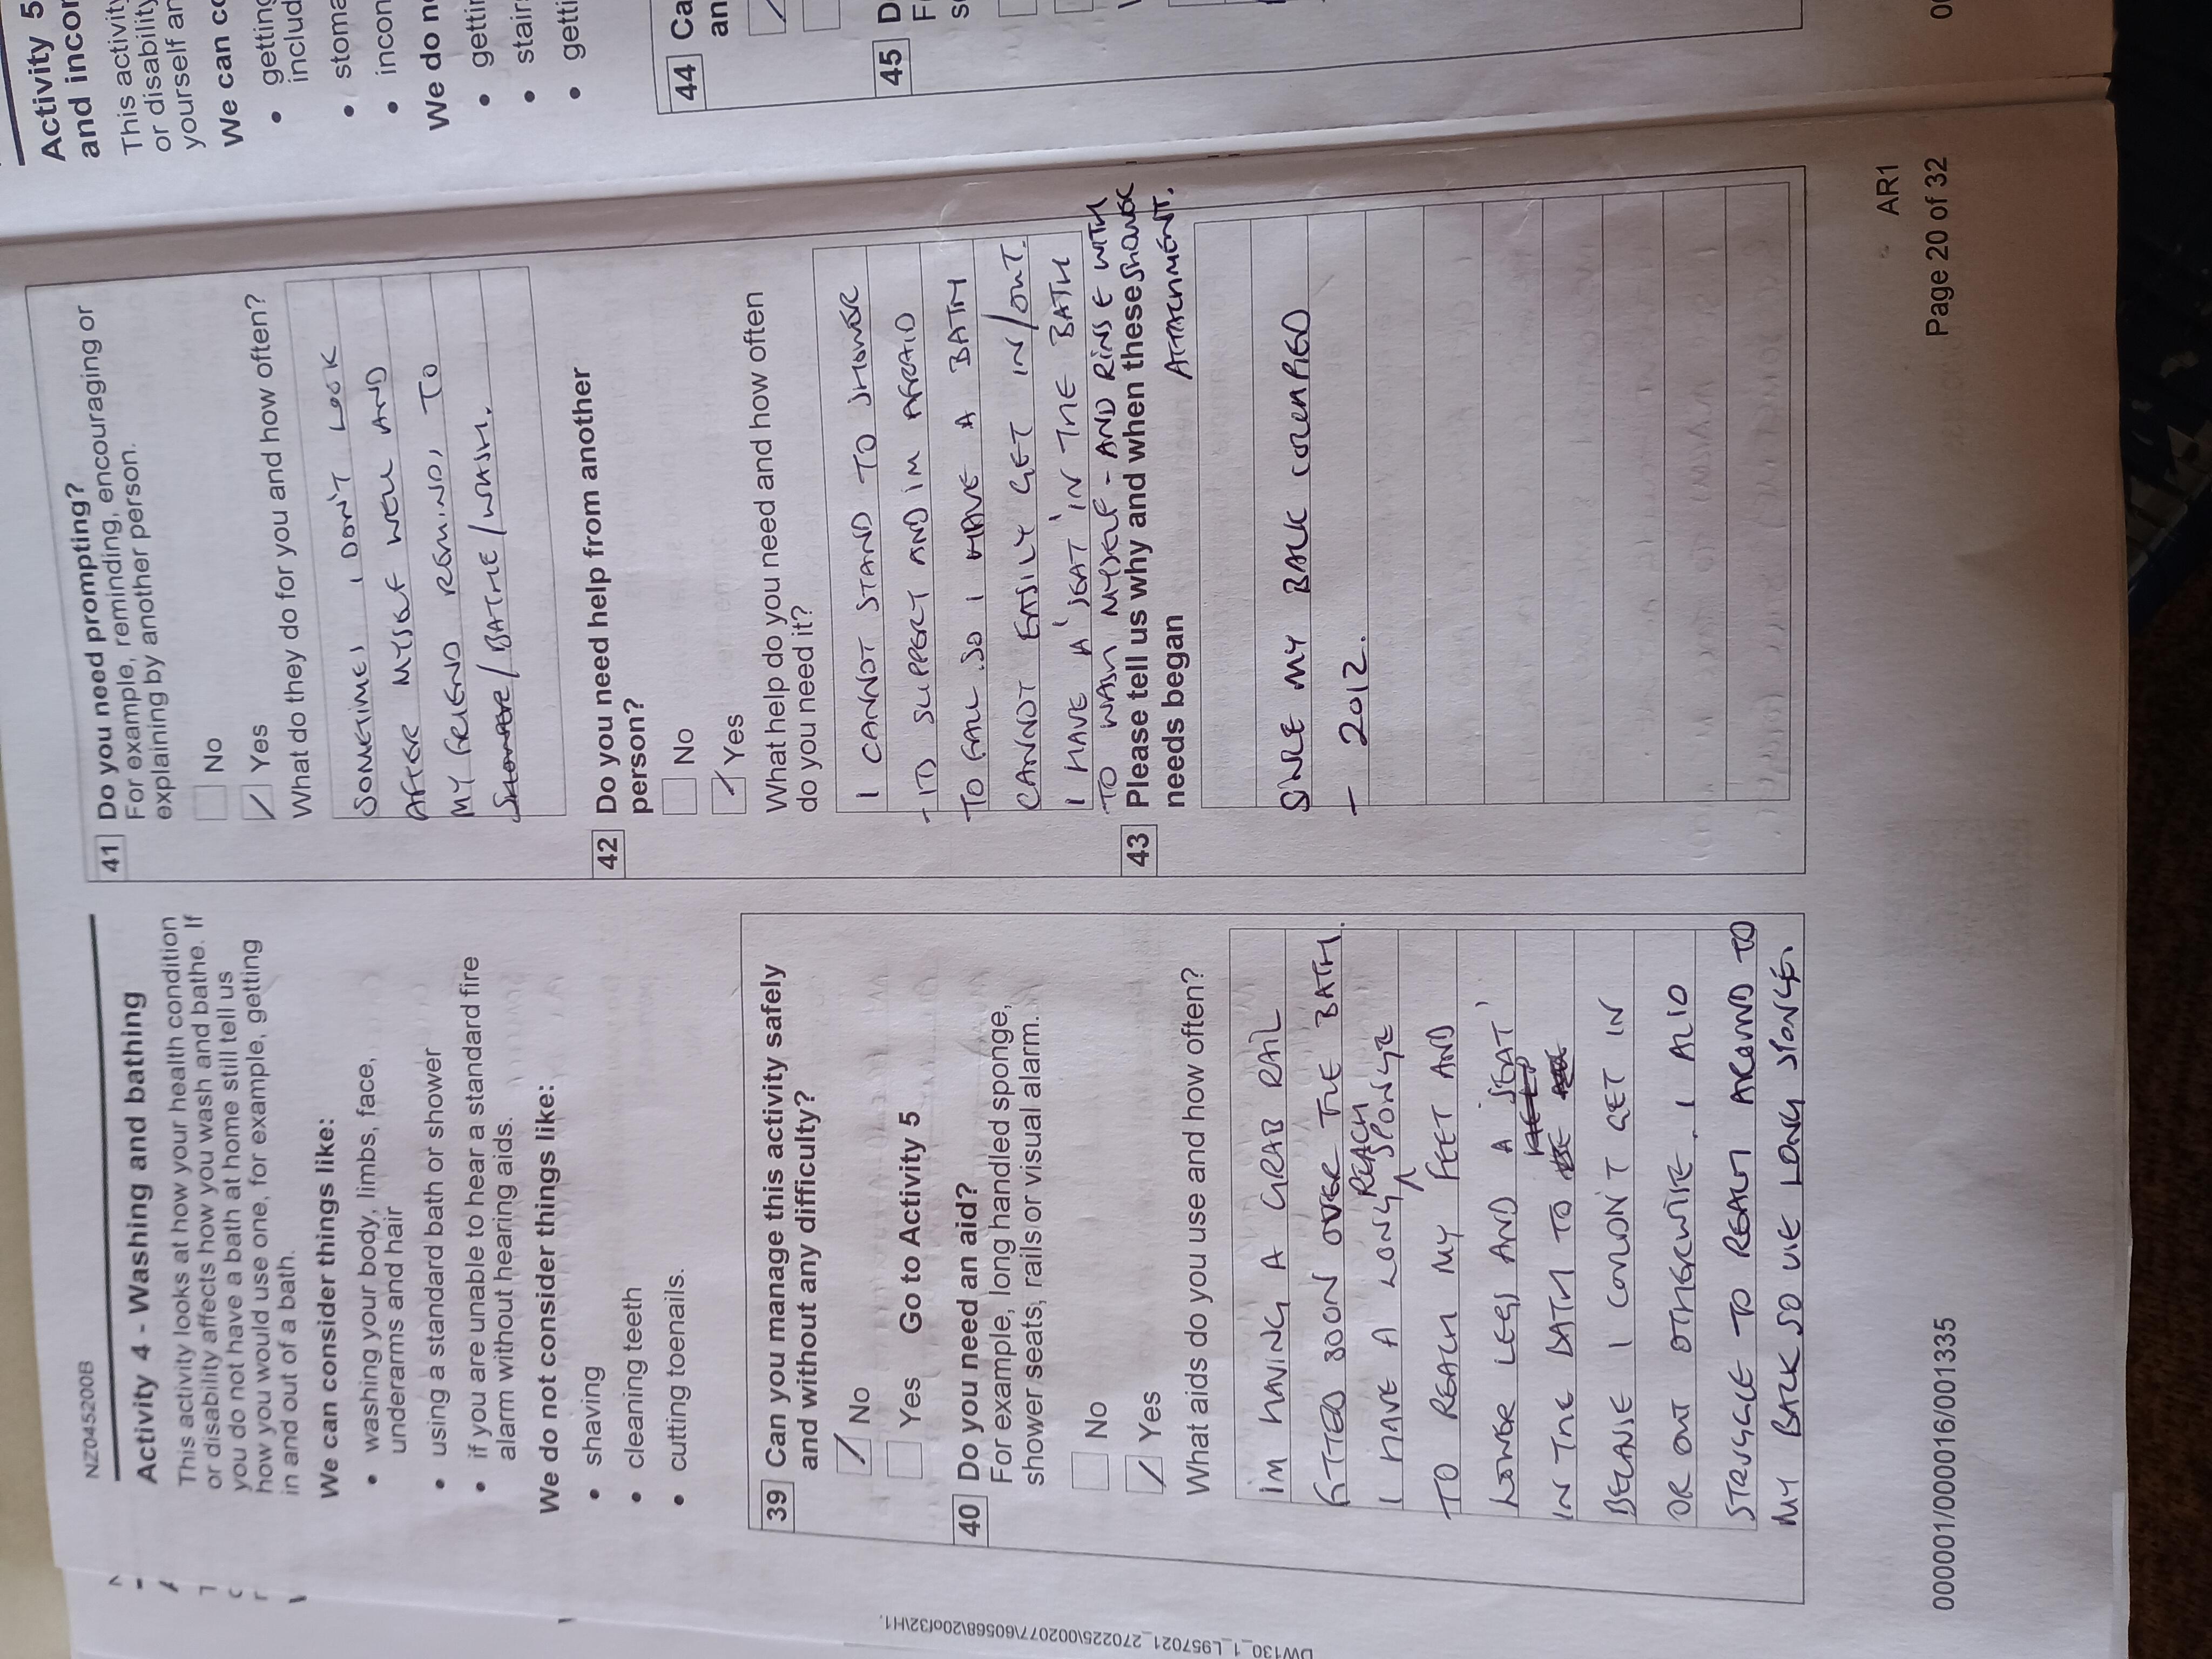 NZ045200B
Activity 4 - Washing and bathing
This activity looks at how your health condition
or disability affects how you wash and bathe. If
you do not have a bath at home still tell us
how you would use one, for example, getting
in and out of a bath.
We can consider things like:
• washing your body, limbs, face,
underarms and hair
• using a standard bath or shower
• if you are unable to hear a standard fire
alarm without hearing aids.
We do not consider things like:
• shaving
• cleaning teeth
• cutting toenails.
39 Can you manage this activity safely
and without any difficulty?
No
Yes Go to Activity 5
40 Do you need an aid?
For example, long handled sponge,
shower seats, rails or visual alarm.
No
Yes
What aids do you use and how often?
IM HAVING A GRAB RAIL
FITTED SOON OVER THE BATH.
I HAVE A LONG REACH SPONGE
TO REACH MY FEET AND
LOWER LEGS AND A 'SEAT'
IN THE BATH TO
BECAUSE I COULDN'T GET IN
OR OUT OTHERWISE. I ALSO
STRUGGLE TO REACH AROUND TO
MY BACK SO USE LONG SPONGE.
41 Do you need prompting?
For example, reminding, encouraging or
explaining by another person.
No
Yes
What do they do for you and how often?
SOMETIMES I DON'T LOOK
AFTER MYSELF WELL AND
MY FRIEND REMINDS TO
SHOWER/BATHE/WASH.
42 Do you need help from another
person?
No
Yes
What help do you need and how often
do you need it?
I CANNOT STAND TO SHOWER
- ITS SLIPPERY AND IM AFRAID
TO FALL. SO I HAVE A BATH
CANNOT EASILY GET IN/OUT.
I HAVE A 'SEAT' IN THE BATH
TO WASH MYSELF - AND RINSE WITH
SHOWER
ATTACHMENT.
43 Please tell us why and when these
needs began
SINCE MY BACK
- 2012.
AR1
000001/000016/001335
Page 20 of 32
DW130_1_L957021_270225\000207\60568\20of32\H1.
Activity 5
and incon
This activity
or disability
yourself an
We can co
• getting
includ
• stoma
• incon
We do no
• gettin
• stairs
• getti
44 Ca
an
45 D
F
s